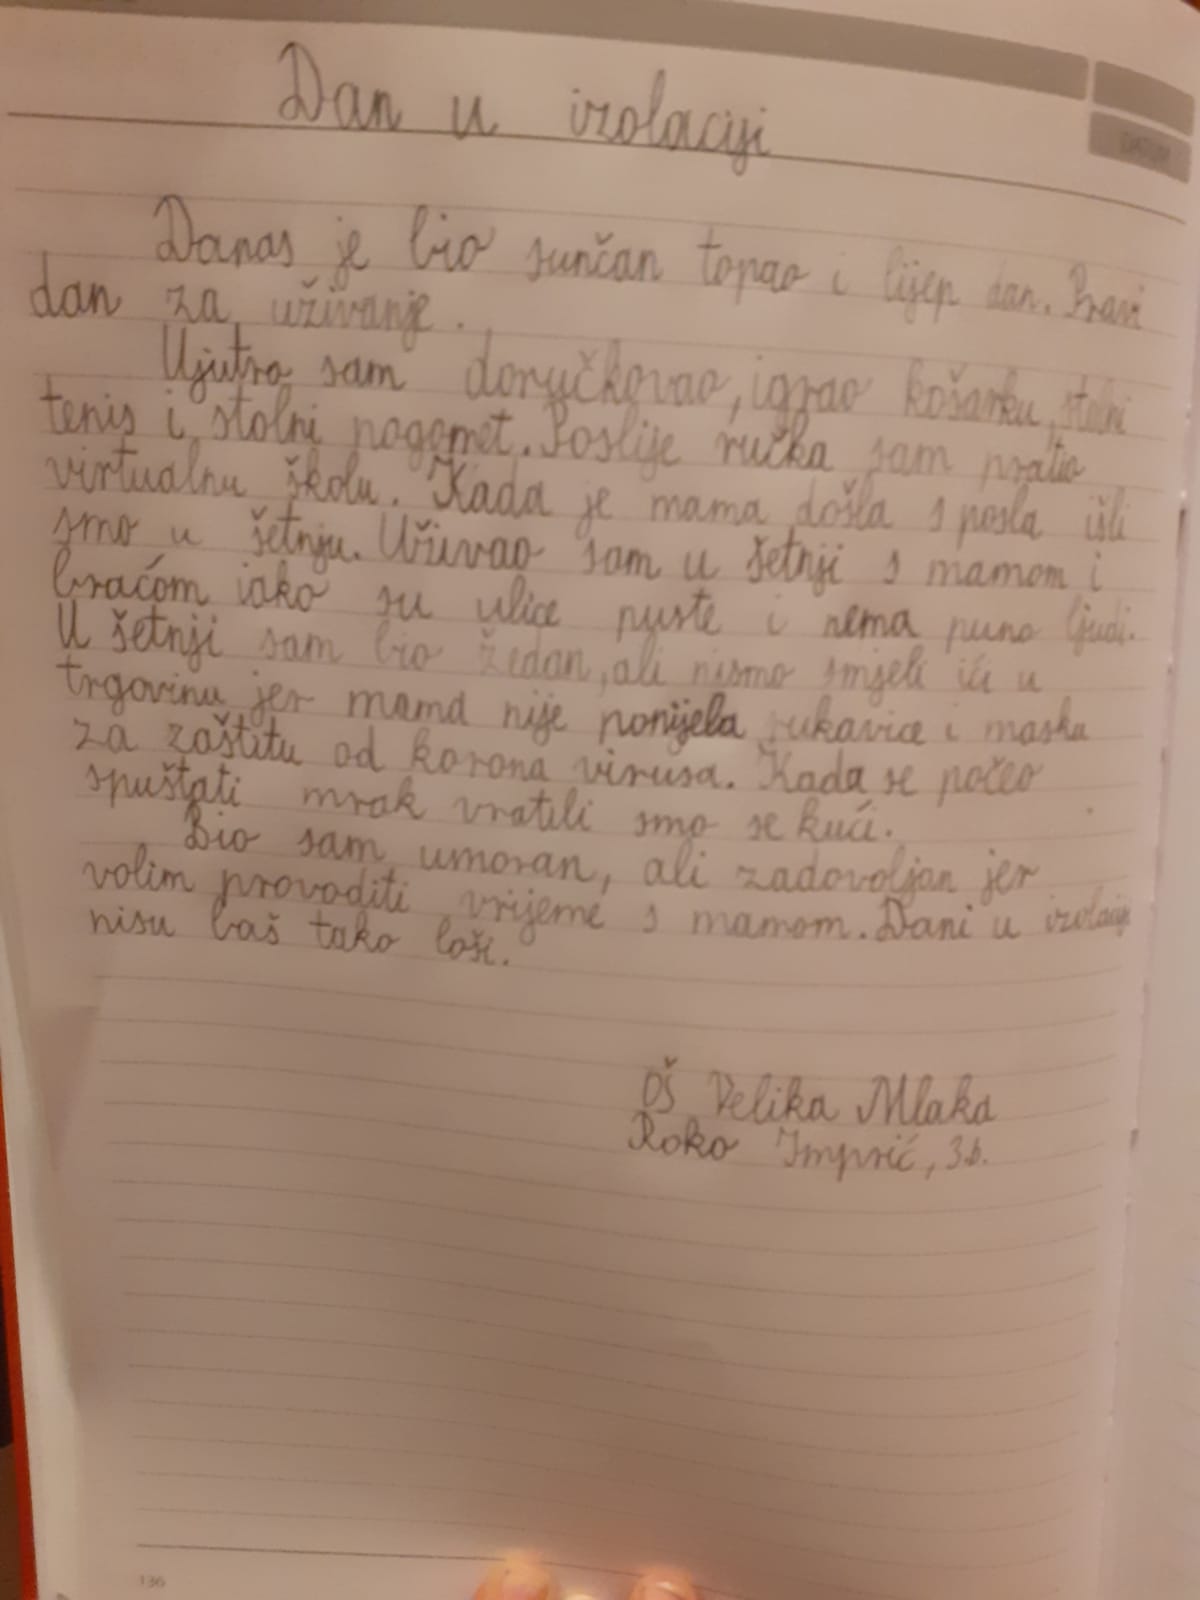 Dan u izolaciji
Danas je bio sunčan topao i lijep dan. Pravi
dan za uživanje.
Ujutro sam doručkovao, igrao košarku, stolni
tenis i stolni nogomet. Poslije ručka sam pratio
virtualnu školu. Kada je mama došla s posla išli
smo u šetnju. Uživao sam u šetnji s mamom i
braćom iako su ulice puste i nema puno ljudi.
U šetnji sam bio žedan, ali nismo smjeli ići u
trgovinu jer mama nije ponijela rukavice i masku
za zaštitu od korona virusa. Kada se počeo
spuštati mrak vratili smo se kući.
Bio sam umoran, ali zadovoljan jer
volim provoditi vrijeme s mamom. Dani u izolaciji
nisu baš tako loši.
OŠ Velika Mlaka
Roko Imprić, 3.b.
136